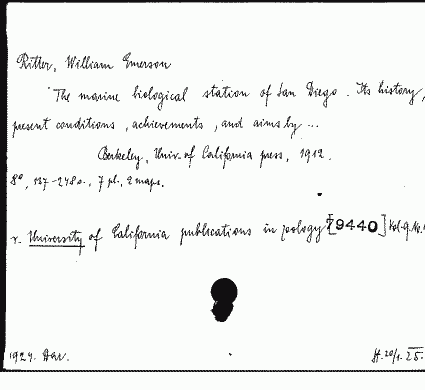 Ritter, William Emerson
The marine biological station of San Diego. Its history,
present conditions, achievements, and aims by ...
Berkeley, Univ. of California press, 1912.
8°, 137-248 o., 7 pl., 2 maps.
v. University of California publications in zoology [9440] Vol. 9. No. 4
1924. Dar.
H. 20/1. 25.